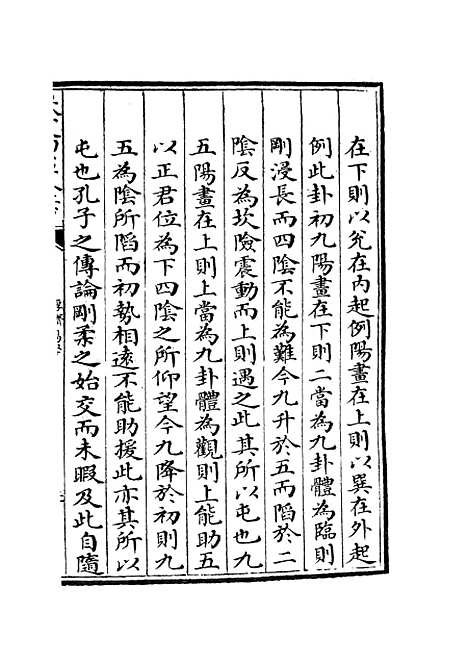 在下則以兊在内起例陽畫在上則以巽在外起
例此卦初九陽畫在下則二當為九卦體為臨則
剛浸長而四陰不能為難今九升於五而陷於二
陰反為坎險震動而上則遇之此其所以屯也九
五陽畫在上則上當為九卦體為觀則上能助五
以正君位為下四陰之所仰望今九降於初則九
五為陰所陷而初勢相逺不能助援此亦其所以
屯也孔子之傳論剛柔之始交而未暇及此自隨